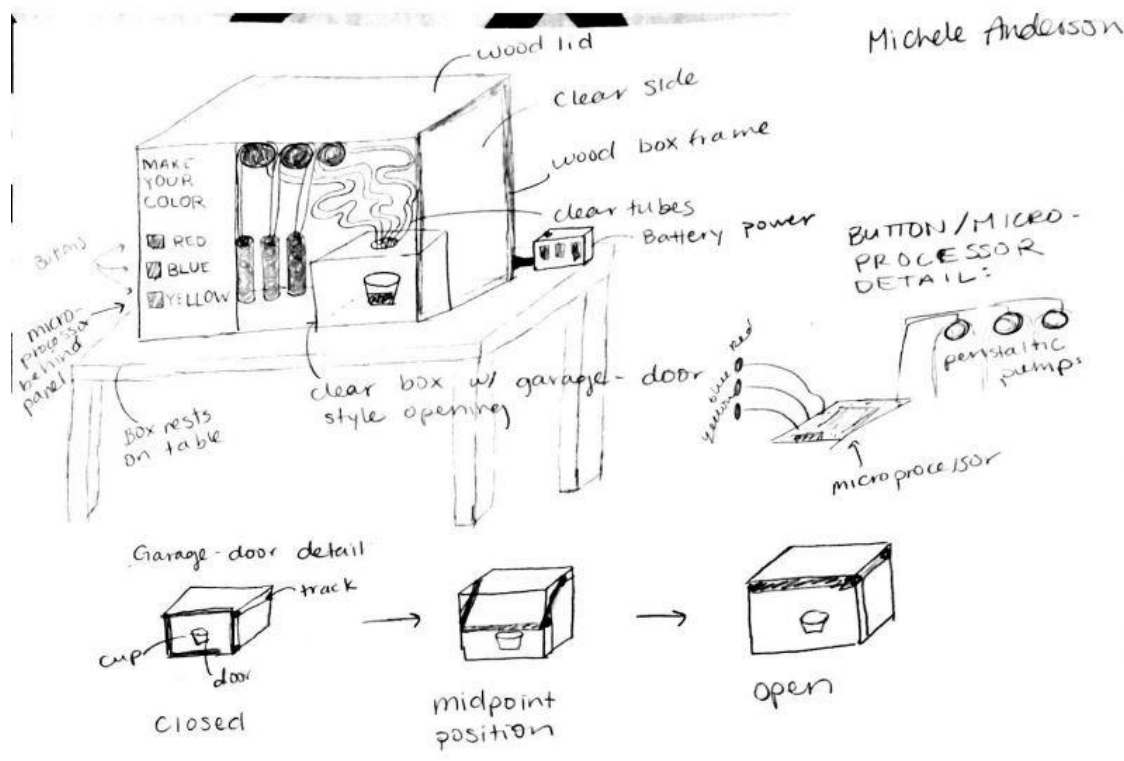 Michele Anderson
wood lid
clear side
wood box frame
clear tubes
Battery power
MAKE
YOUR
COLOR
RED
BLUE
YELLOW
Buttons
micro-
processor
behind
panel
Box rests
on table
clear box w/ garage-door
style opening
BUTTON/MICRO-
PROCESSOR
DETAIL:
red
blue
yellow
peristaltic
pumps
microprocessor
Garage-door detail
track
cup
door
closed
midpoint
position
open